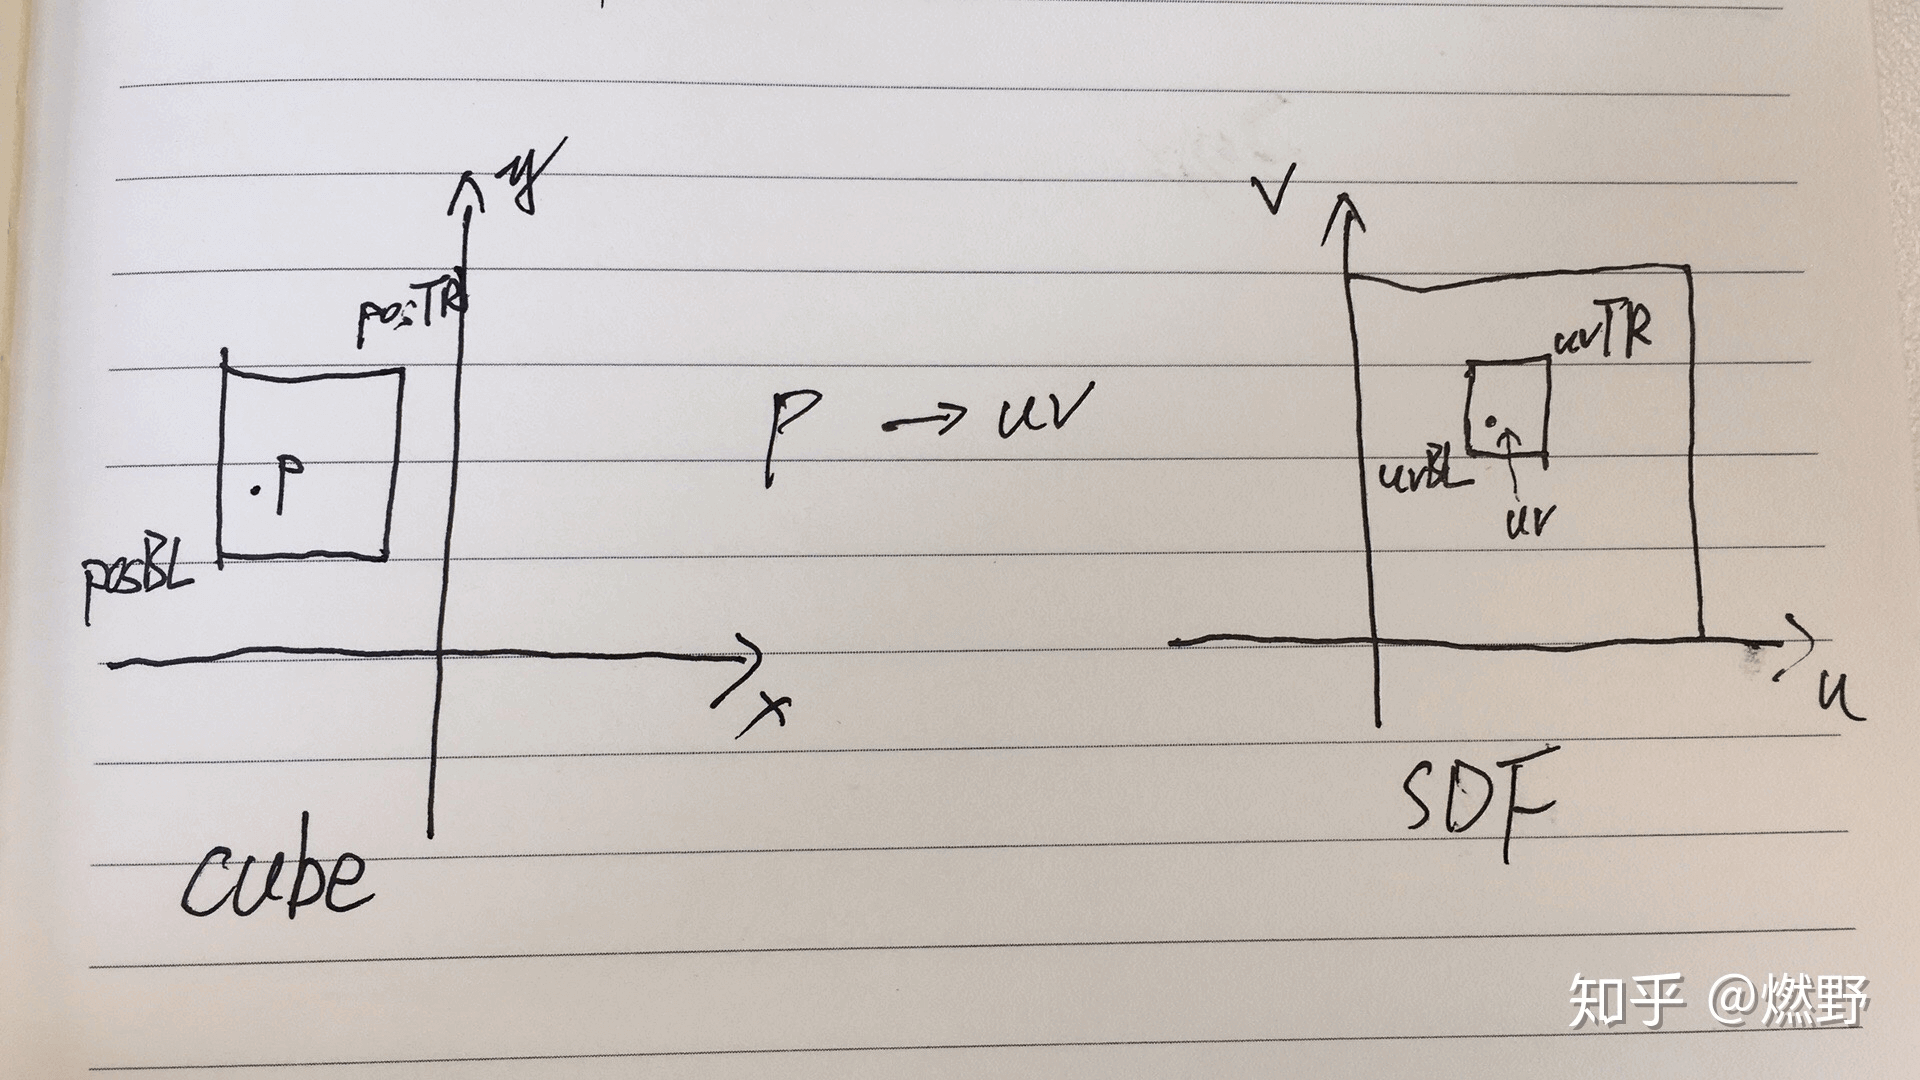 y
posTR
P
posBL
x
cube
P → uv
v
uvTR
uvBL
uv
u
SDF
知乎 @燃野